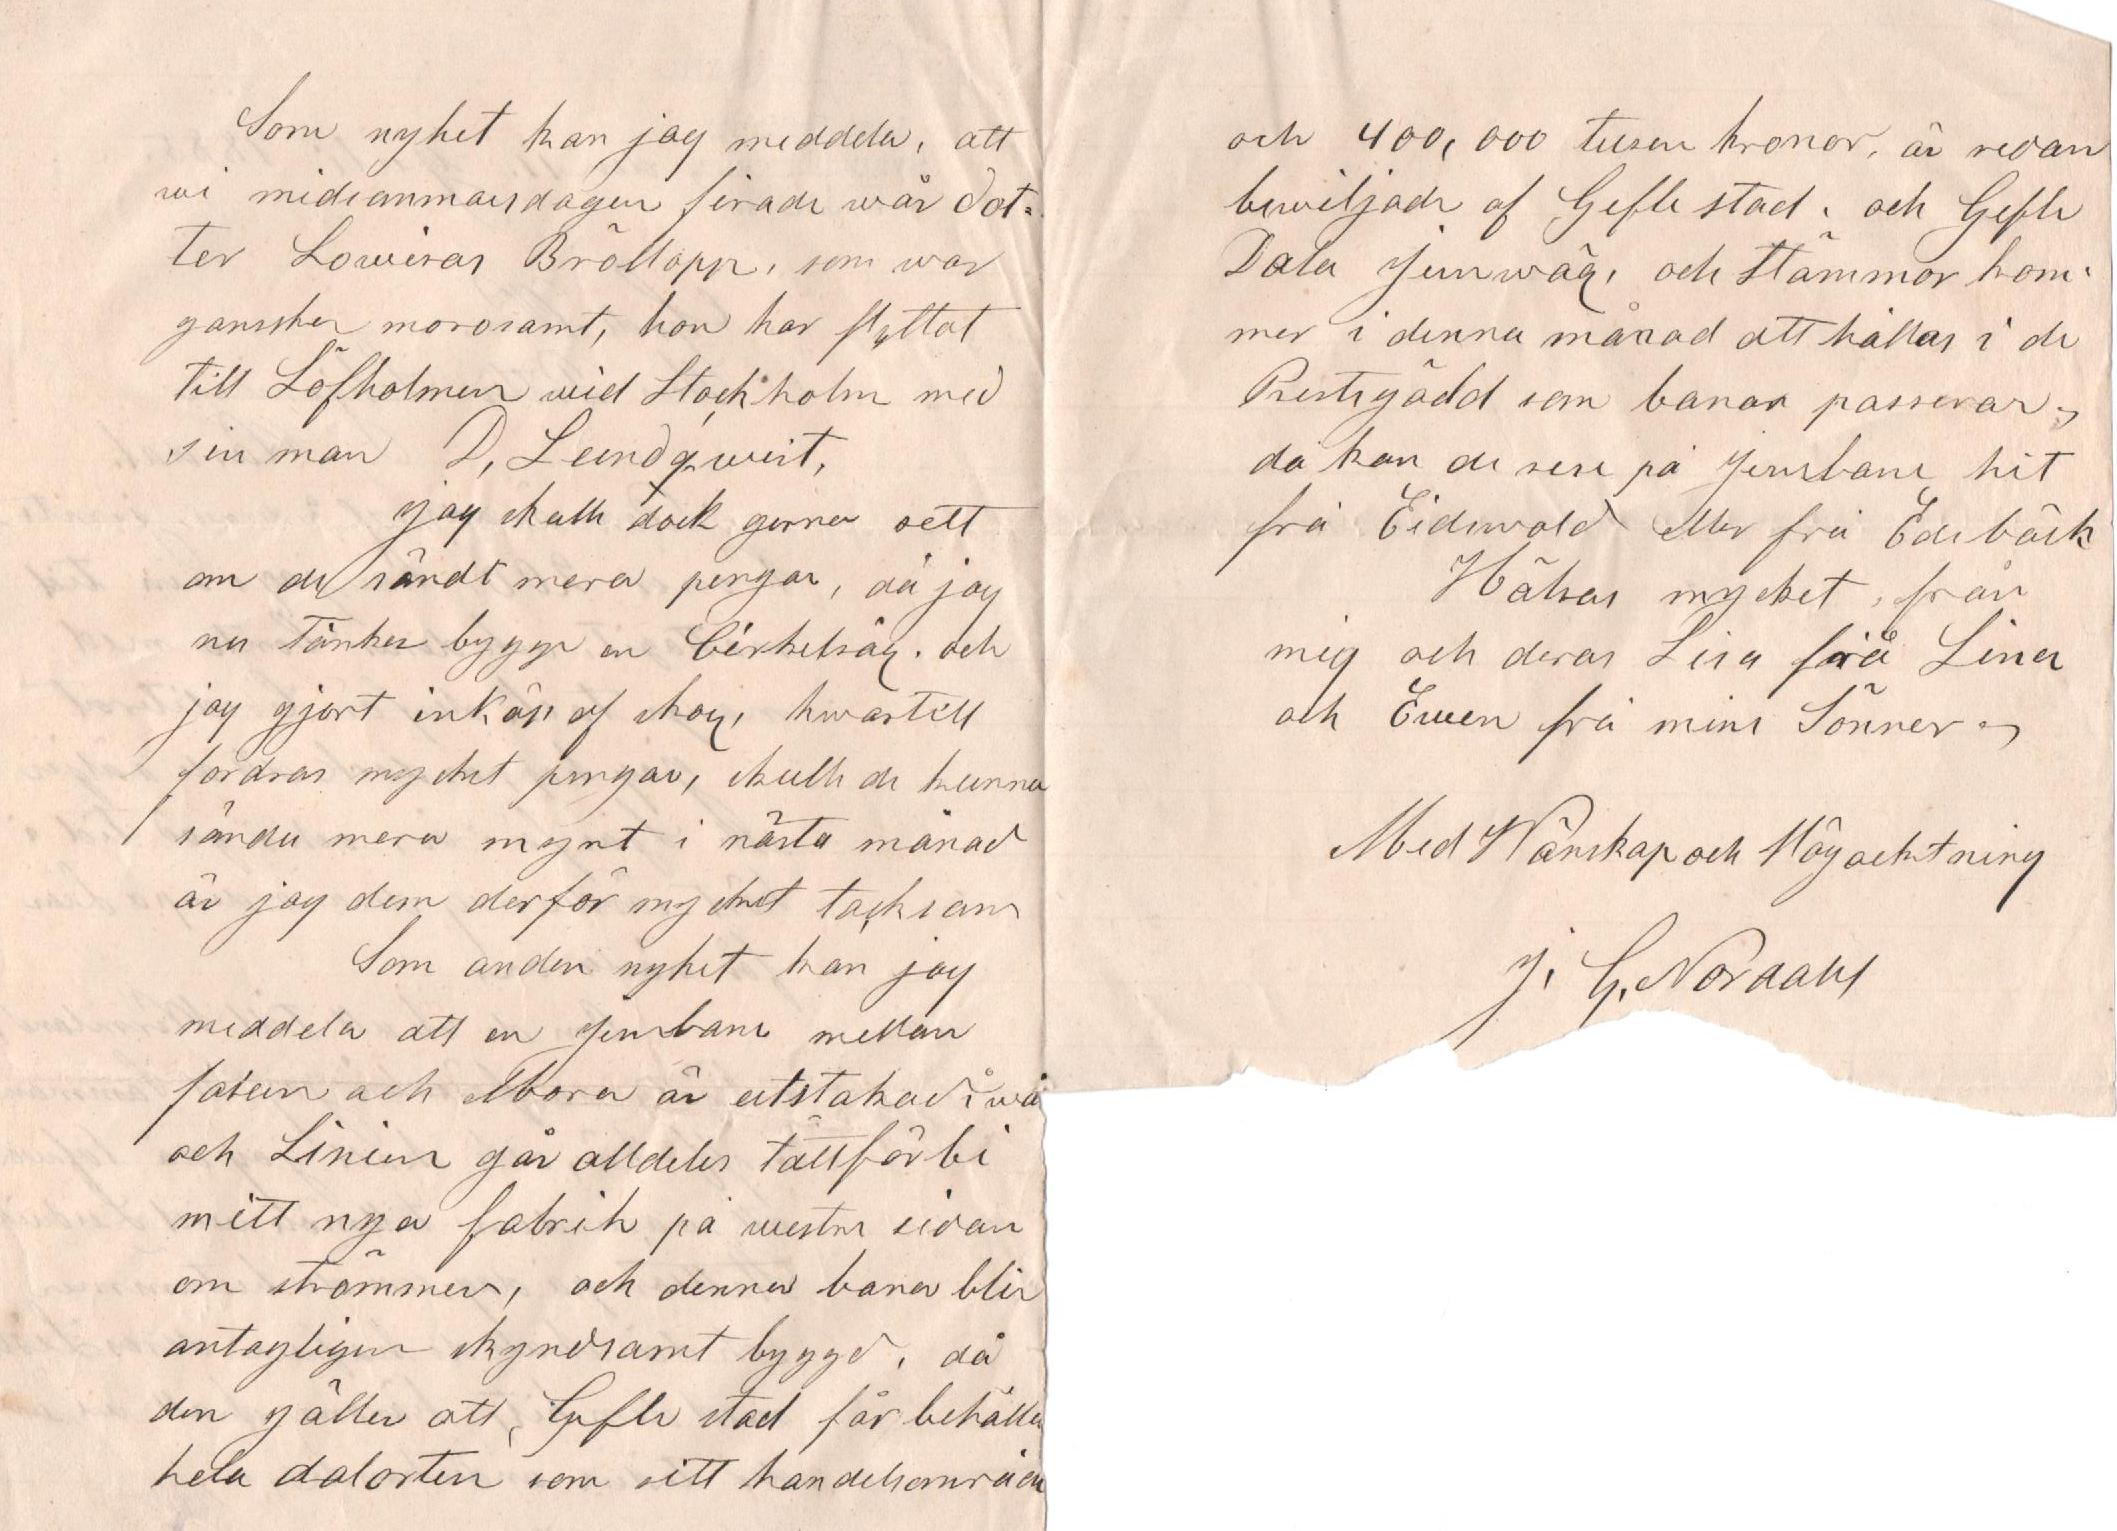 Som nyhet kan jag meddela, att
wi midsammarsdagen firade wår dot=
ter Lowisas Bröllopp, som war
gansska morosamt, hon har flyttat
till Löfholmen wid Stockholm med
sin man D, Lundqwist,
jag skulle dock gerna sett
om de sändt mera pengar, då jag
nu tänker bygga en Cirkelsåg. och
jag gjort inköp af skog, hwartill
fordras mycket pengar, skulle de kunna
sända mera mynt i nästa månad
är jag dem derför mycket tacksam
Som anden nyhet kan jag
meddela att en jernbana mellan
falun och Mora är utstakad
och Linien går alldeles tätt förbi
mitt nya fabrik på westra sidan
om strömmen, och denna bana blir
antagligen skyndsamt byggd, då
den gäller att, Gefle stad får behålla
hela dalorten som sitt handelsområde
och 400,000 tusen kronor, är redan
bewiljade af Gefle stad, och Gefle
Dala jernwäg, och stämmor kom=
mer i denna månad att hållas i de
Prestegädd som banan passerar,
då kan de resa på jernbana hit
frå Eidswold eller frå Edebäck
Hälsas mycket, från
mig och deras Lisa frå Lina
och Even frå mina Sönner
Med Wänskap och Högacktning
J. G. Nordahl